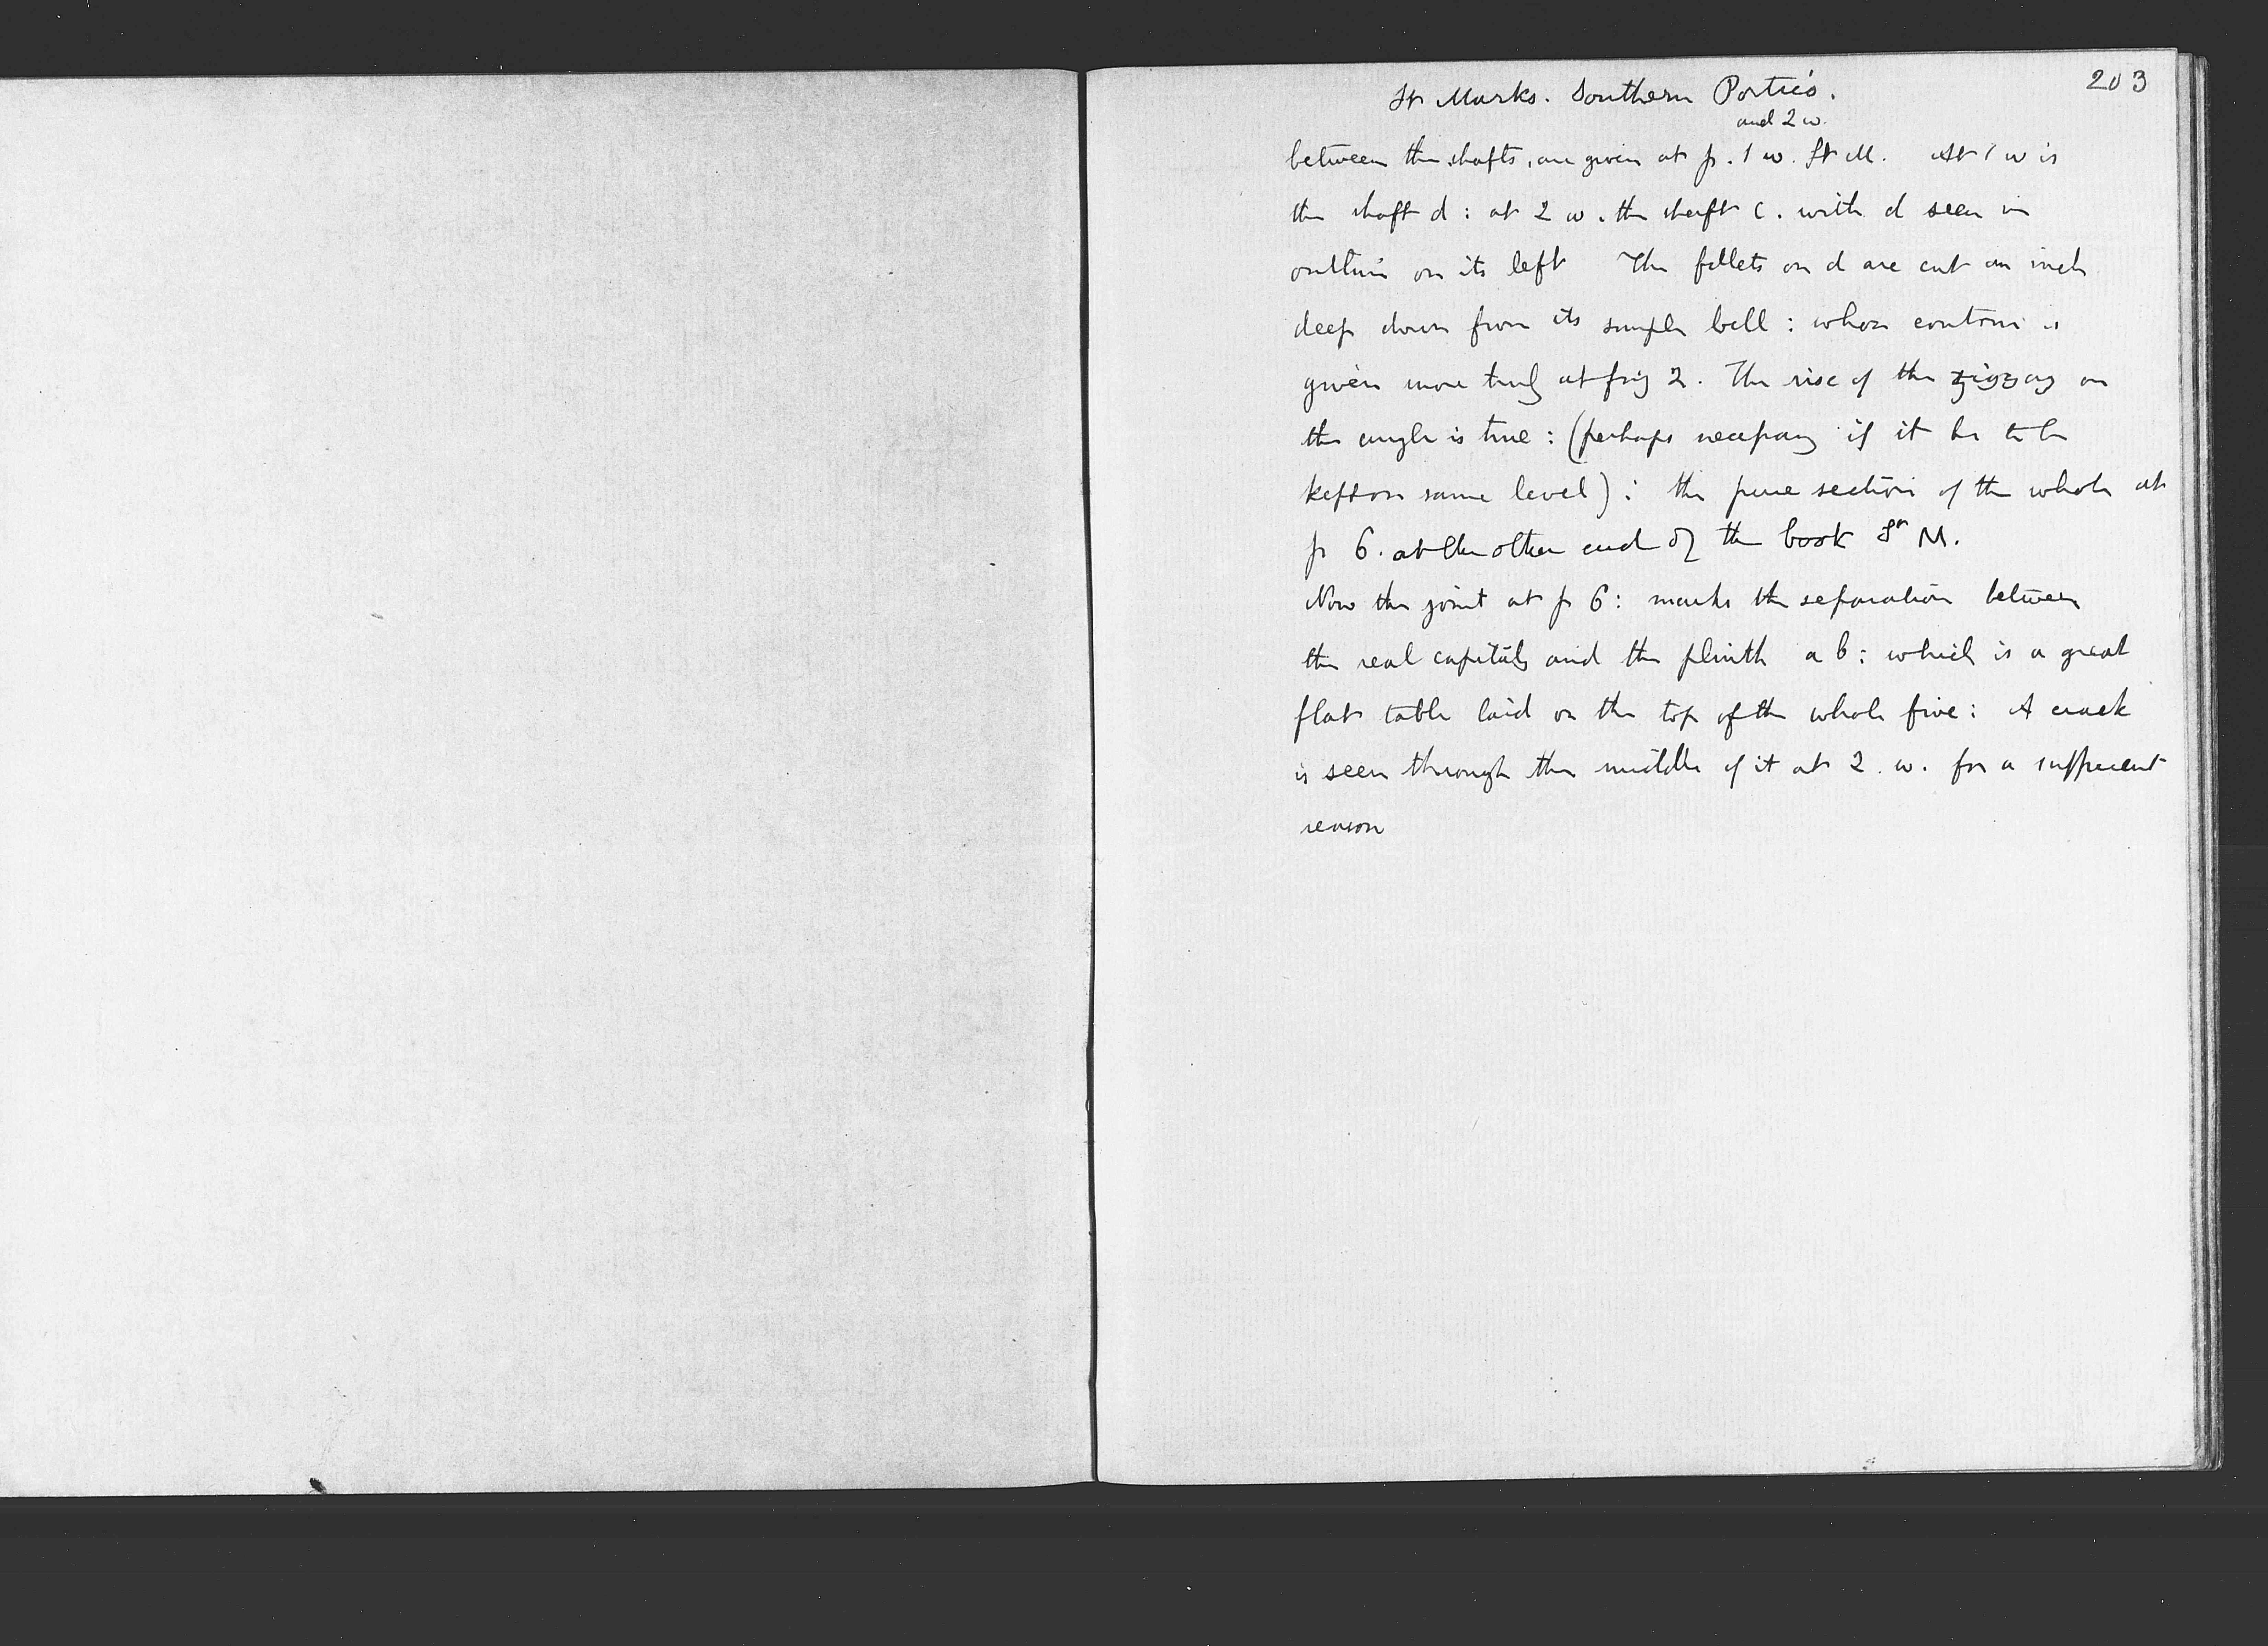 203
St Marks. Southern Portico.
and 2 w.
between the shafts, are given at p. 1 w. St M. At 1 w is
the shaft d: at 2 w. the shaft c. with d seen in
outline on its left The fillets on d are cut an inch
deep down from its simple bell: whose contour is
given more truly at fig 2. The rise of the zigzag on
the angle is true: (perhaps necessary if it be to be
kept on same level): the pure section of the whole at
p 6. at the other end of the book St M.
Now the joint at p 6: marks the separation between
the real capitals and the plinth a b: which is a great
flat table laid on the top of the whole five: A crack
is seen through the middle of it at 2. w. for a sufficient
reason